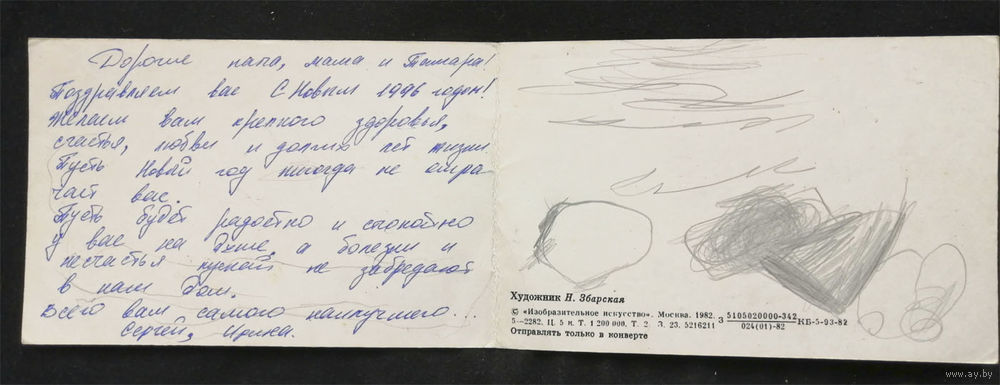 Дорогие папа, мама и Тамара!
Поздравляем вас С Новым 1996 годом!
Желаем вам крепкого здоровья,
счастья, любви и долгих лет жизни
Пусть Новый год никогда не огра-
чает вас.
Пусть будет радостно и спокойно
у вас на душе, а болезни и
несчастья пускай не забредают
в наш дом.
Всего вам самого наилучшего...
Сергей,
Художник Н. Збарская
© «Изобразительное искусство». Москва. 1982.
5—2282. Ц. 5 к. Т. 1 200 000. Т. 2 З. 23. 5216211
З 5105020000-342 / 024(01)-82 КБ-5-93-82
Отправлять только в конверте
www.ay.by